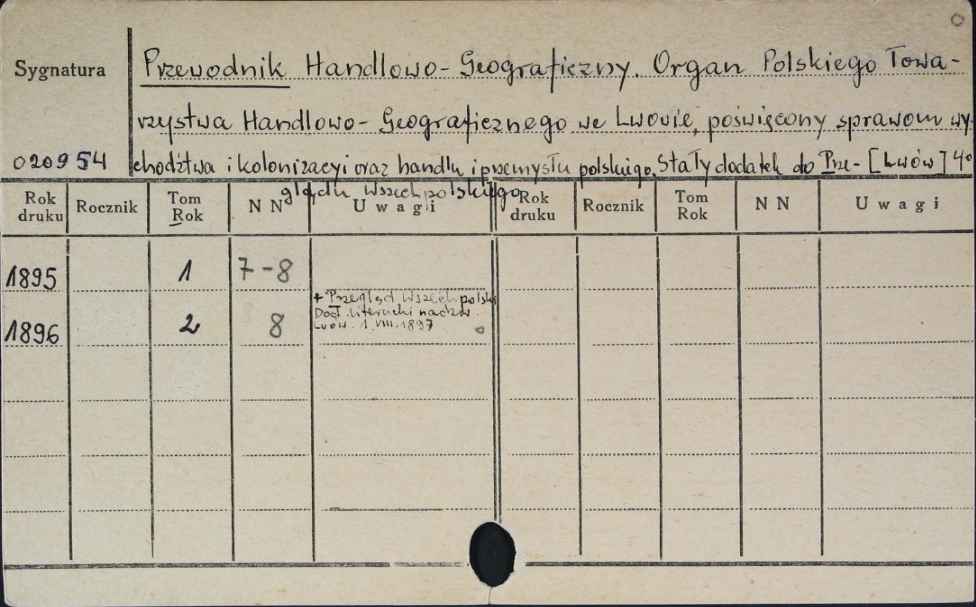 Sygnatura
Przewodnik Handlowo-Geograficzny. Organ Polskiego Towa-
rzystwa Handlowo-Geograficznego we Lwowie, poświęcony sprawom wy-
020954
chodźtwa i kolonizacyi oraz handlu i przemysłu polskiego. Stały dodatek do Prze- [Lwów] 4°
glądu Wszechpolskiego
Rok druku Rocznik Tom Rok NN Uwagi Rok druku Rocznik Tom Rok NN Uwagi
1895 1 7-8
1896 2 8
+ Przegląd Wszechpolski
Dod. literacki
Lwów. 1.VIII.1897